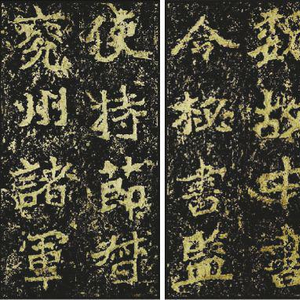 魏故中書
令秘書監
使持節督
兗州諸軍